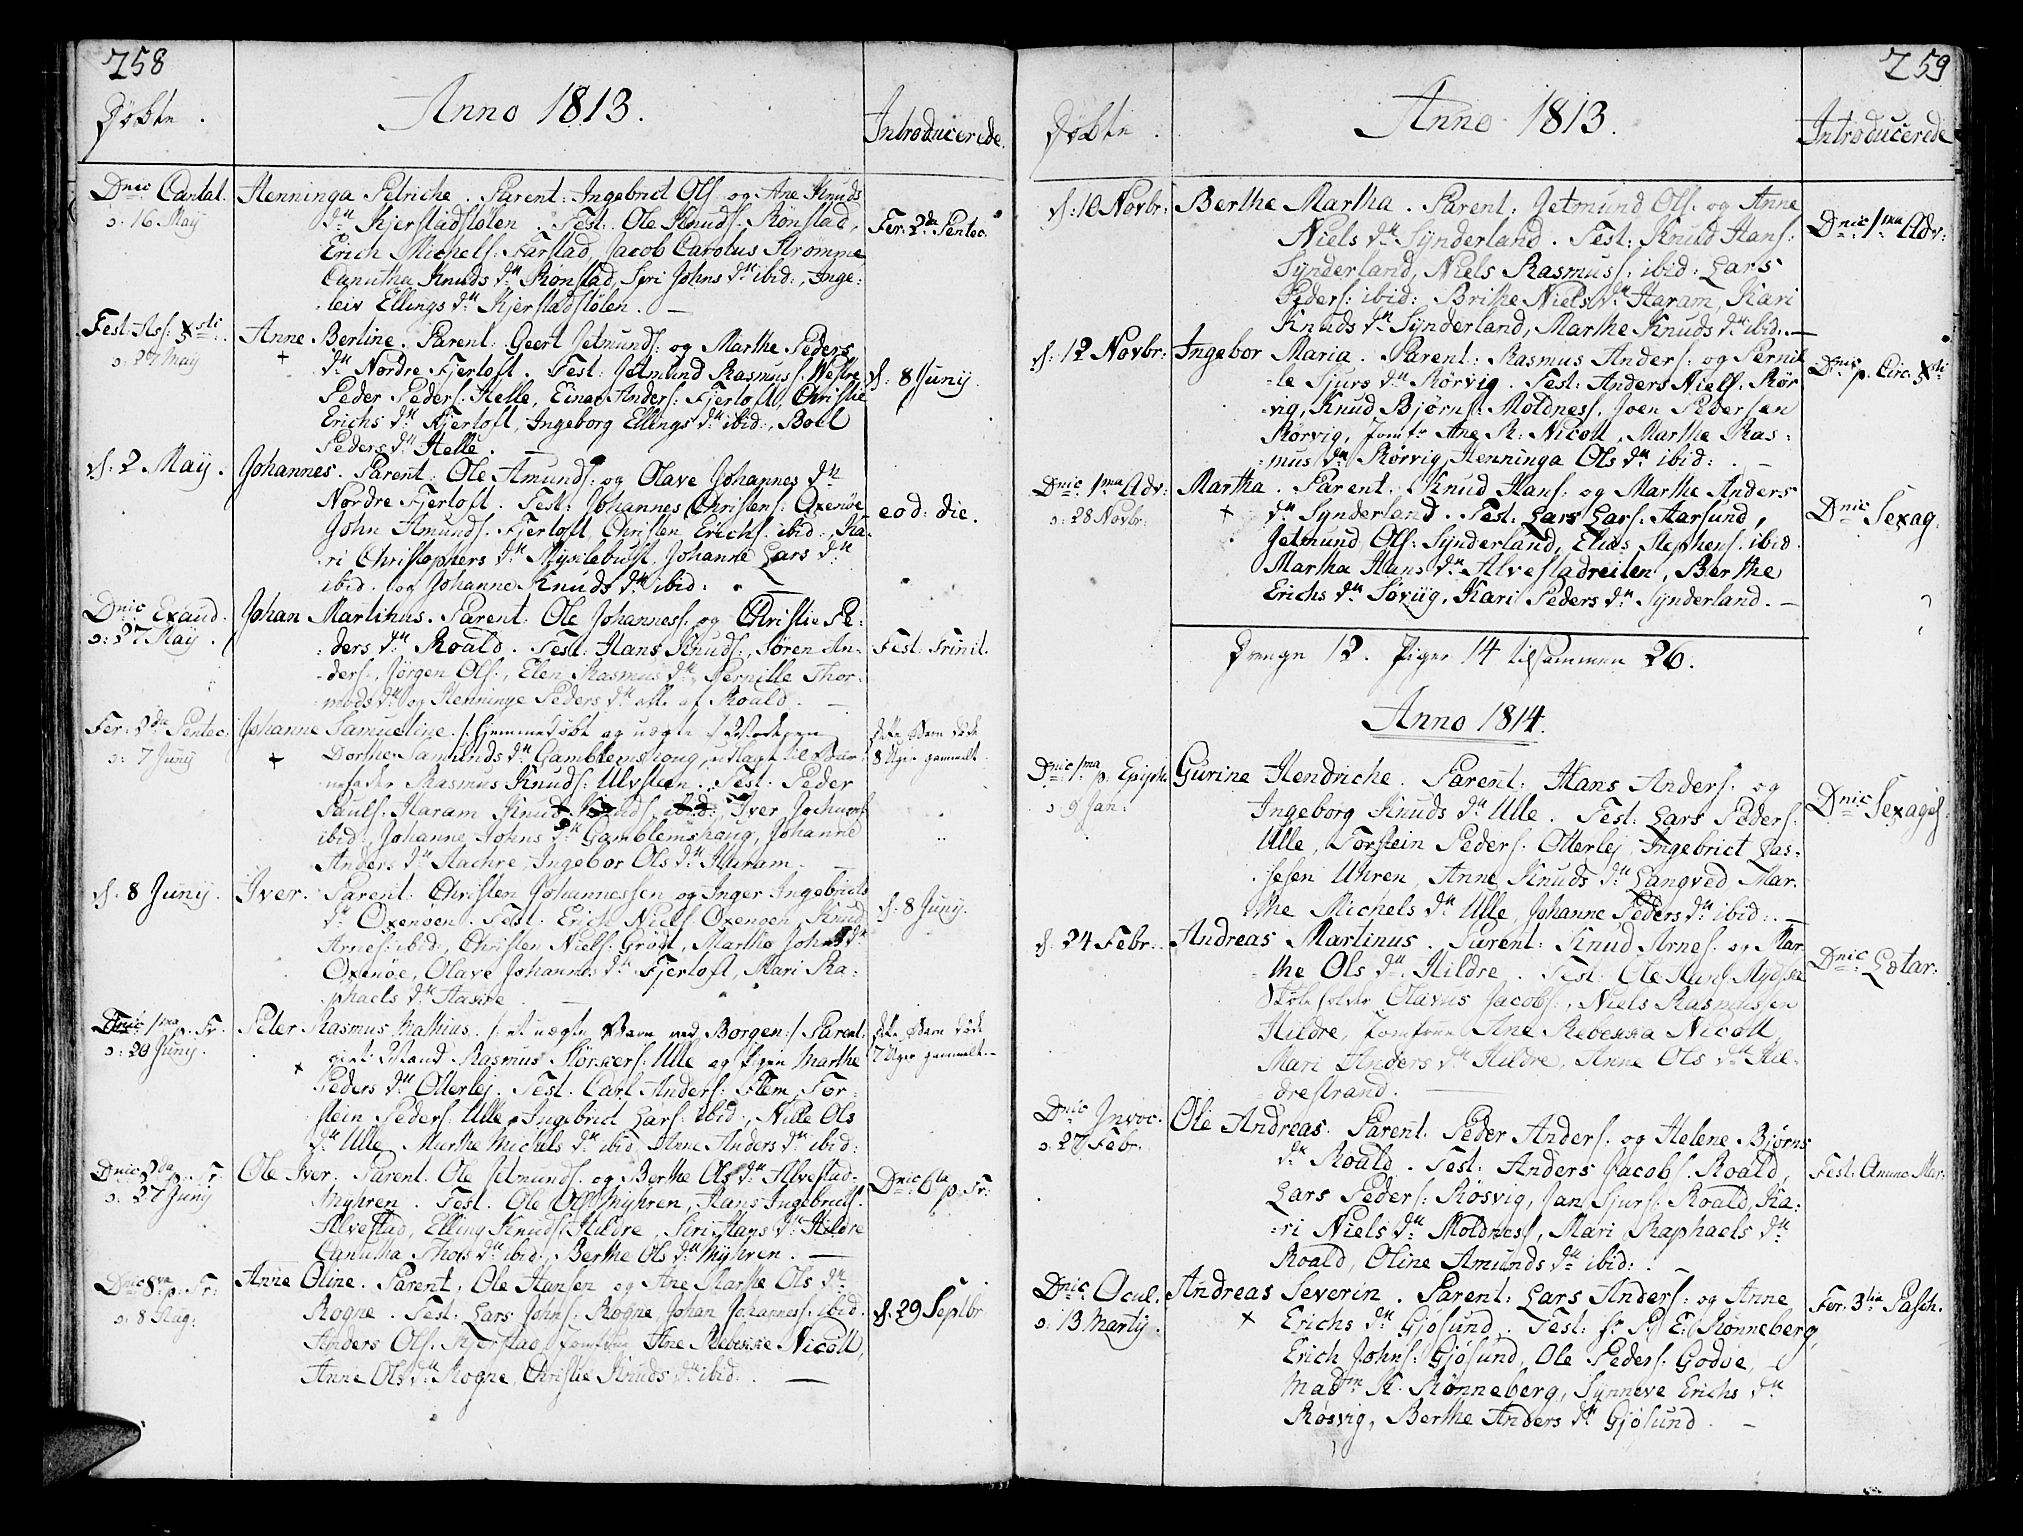 758
Døbte.
Anno 1813.
Introducerede.
Dnic Cantat.
ɔ: 16 Maij
Henninga Petriche. Parent: Ingebrict Ols. og Ane Knuds
dtr Kjerstadstølen. Test: Ole Knuds. Rønstad,
Erich Michels: Farstad, Jacob Carolus Strømme
Canutha Knuds dtr Rønstad, Siri Johns dtr ibid:, Inge=
=leiv Ellings dtr Kjerstadstølen. —
Fer: 2da Pentec.
Fest: Asc: Xsti
ɔ: 27 Maij
Anne Berline. Parent: Geert Jetmunds: og Marthe Peders
dtr Nordre Fjertoft. Test: Jetmund Rasmuss. Westre
Peder Peders: Helle, Einar Anders: Fjertoft, Christie
Erichs dtr Fjertoft, Ingeborg Ellings dtr ibid:, Boel
Peders dtr Helle. —
d: 8 Junij
d: 2 Maij.
Johannes. Parent: Ole Amunds: og Olave Johannes dtr
Nordre Fjertoft. Test: Johannes Christens: Oxenøe
John Amunds. Fjertoft, Christen Erichs. ibid:, Ka=
=ri Christophers dtr Myclebust, Johanne Lars dtr
ibid. og Johanne Knuds dtr ibid:
eod: die.
Dnic Exaud.
ɔ: 27 Maij.
Johan Martinus. Parent: Ole Johanness. og Christie Pe=
=ders dtr Roald. Test: Hans Knuds:, Søren An=
=ders., Jørgen Ols., Elen Rasmus dtr, Pernille Thor=
mods dtr og Henninge Peders dtr alle af Roald. —
Fest: Trinit.
Fer: 2da Pentec.
ɔ: 7 Junij
Johanne Samueline. /: hjemmedøbt og uægte :/ Moderen
Dorthe Samunds dtr Gamblemshoug, udlagt til Bar=
nefader Rasmus Knuds: Ulvsteen. Test: Peder
Pauls: Haram Knud Knuds, ibid:, Iver Jochums
ibid: Johanne Johns dtr Gamblemshoug, Johanne
Anders dtr Stachre, Ingebor Ols dtr Haram. —
dette Barn døde
8 Uger gammelt.
d: 8 Junij.
Iver. Parent: Christen Johannessen og Inger Ingebricts
dtr Oxenøen. Test: Erich Niels. Oxenøen, Knud
Arnes: ibid:, Christen Niels: Grøtt, Marthe Johns dtr
Oxenøe, Olave Johannes dtr Fjertoft, Mari Ra=
phaels dtr Hastre. —
d: 8 Junij.
Dnic 1ma p. Tr.
ɔ: 20 Junij.
Peter Rasmus Mathias. /: et uægte Barn ved Borgen :/ Parent:
gift Mand Rasmus Kørsvers: Ulle og Pigen Marthe
Peders dtr Otterlej. Test: Carl Anders: Flem, Tor=
=stein Peders: Ulle, Ingebrict Lars: ibid:, Nille Ols
dtr Ulle, Marthe Michels dtr ibid. Anne Anders dtr ibid:
dette Barn døde
7 Uger gammelt.
Dnic 2da p. Tr.
ɔ: 27 Junij
Ole Iver. Parent: Ole Jetmunds: og Berthe Ols dtr Alvestad=
Myhren. Test: Ole Ols Myhren, Hans Ingebricts.
Alvestad, Elling Knuds: Hildre, Siri Hans dtr Hildre
Canutha Thors dtr ibid:, Berthe Ols dtr Myhren. —
Dnic 6ta p. Tr:
Dnic 8va p. Tr:
ɔ: 8 Aug:
Anne Oline. Parent: Ole Hansen og Ane Marthe Ols dtr
Rogne. Test: Lars Johns: Rogne, Johan Johanness. ibid.
Anders Ols. Kjerstad, Jomfrue Ane Rebekke Nicoll,
Anne Ols dtr Rogne, Christie Knuds dtr ibid: —
d: 29 Septbr
759
Døbte.
Anno 1813.
Introducerede
d: 10 Novbr:
Berthe Martha. Parent: Jetmund Ols. og Anne
Niels dtr Synderland. Test: Knud Hans:
Synderland, Niels Rasmuss: ibid: Lars
Peders: ibid:, Brithe Niels dtr Haram, Kari
Knuds dtr Synderland, Marthe Knuds dtr ibid. —
Dnic 1ma Adv:
d: 12 Novbr:
Ingebor Maria. Parent: Rasmus Anders: og Pernil
=le Sjurs dtr Rørvig. Test: Anders Niels. Rør
=vig, Knud Bjørns: Moldness, Joen Pedersen
Rørvig, Jomfr Ane R: Nicoll, Marthe Ras=
=mus dtr Rørvig, Henninga Ols dtr ibid: —
Dnic p. Circ. Xsti
Dnic 1ma Adv:
ɔ: 28 Novbr:
Martha. Parent: Knud Hans: og Marthe Anders
dtr Synderland. Test: Lars Lars. Aarsund,
Jetmund Ols. Synderland, Elias Stephens. ibid.
Martha Hans dtr Alvestadreiten, Berthe
Erichs dtr Søviig, Kari Peders dtr Synderland. —
Dnic Sexag:
Drenge 12. Piger 14 tilsammen 26.
Anno 1814.
Dnic 1ma p. Epiph.
ɔ: 9 Jan.
Gurine Hendriche. Parent: Hans Anders. og
Ingeborg Knuds dtr Ulle. Test: Lars Peders:
Ulle, Torstein Peders. Otterlej, Ingebrict Las=
=sesen Uhren, Anne Knuds dtr Langved, Mar=
the Michels dtr Ulle, Johanne Peders dtr ibid:. —
Dnic Sexages.
d: 24 Febr:
Andreas Martinus. Parent: Knud Arnes. og Mar=
=the Ols dtr Hildre. Test: Ole
Olavus Jacobs:, Niels Rasmussen
Hildre, Jomfrue Ane Rebekka Nicoll,
Mari Anders dtr Hildre, Anne Ols dtr Hil=
=drestrand. —
Dnic Lætar:
Dnic Invoc.
ɔ: 27 Febr.
Ole Andreas. Parent: Peder Anders. og Helene Bjørns
dtr Roald. Test: Anders Jacobs. Roald,
Lars Peders: Røsvig, Jan Sjurs. Roald, Ka=
=ri Niels dtr Moldness, Mari Raphaels dtr
Roald, Oline Amunds dtr ibid:.
Fest: Anunc. Mar:
Dnic Ocul.
ɔ: 13 Martij.
Andreas Severin. Parent: Lars Anders: og Anne
Erichs dtr Gjøsund. Test: Hr P: E: Rønneberg,
Erich Johns: Gjøsund, Ole Peders. Godøe,
Madm K. Rønneberg, Synneve Erichs dtr
Røsvig, Berthe Anders dtr Gjøsund. —
Fer: 3tia Pasch.